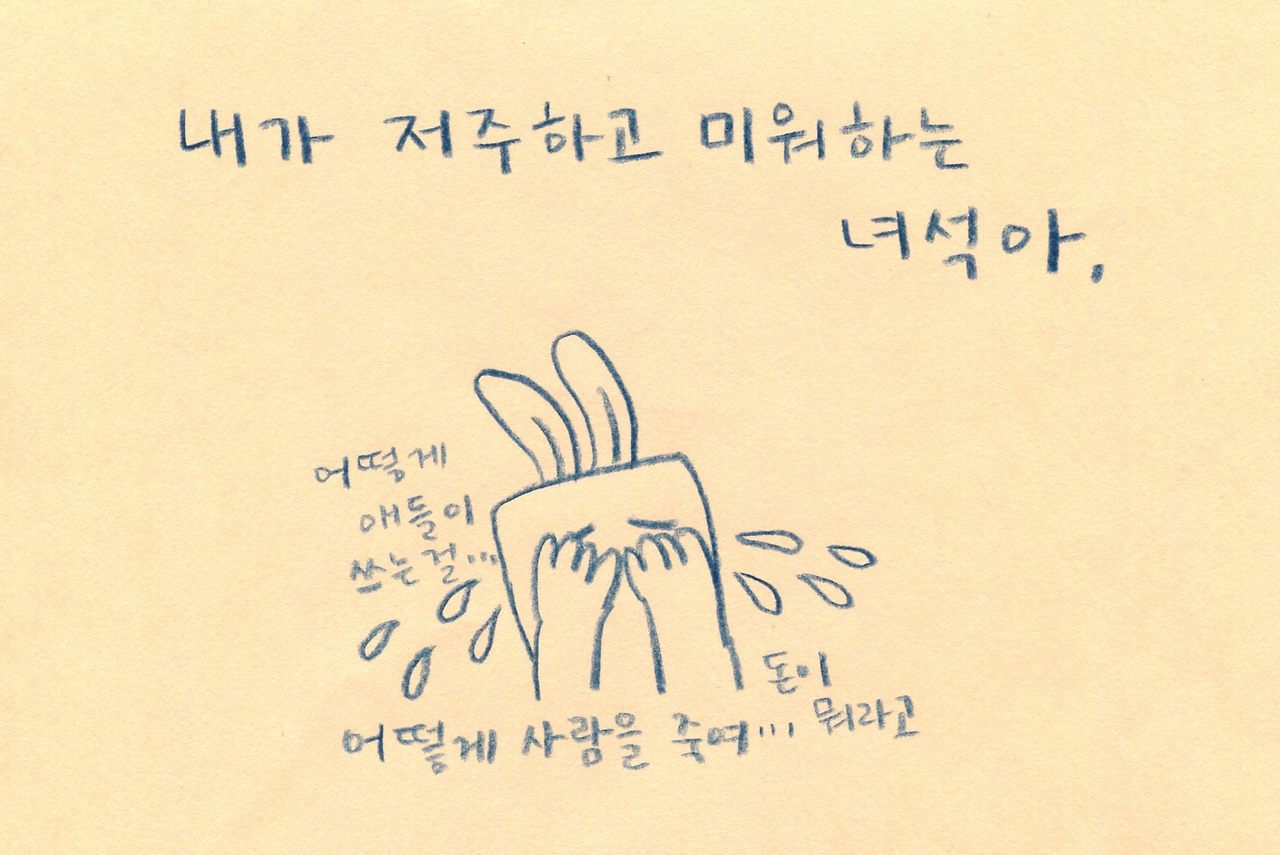 내가 저주하고 미워하는
녀석아,
어떻게
애들이
쓰는걸...
돈이
뭐라고
어떻게 사람을 죽여...